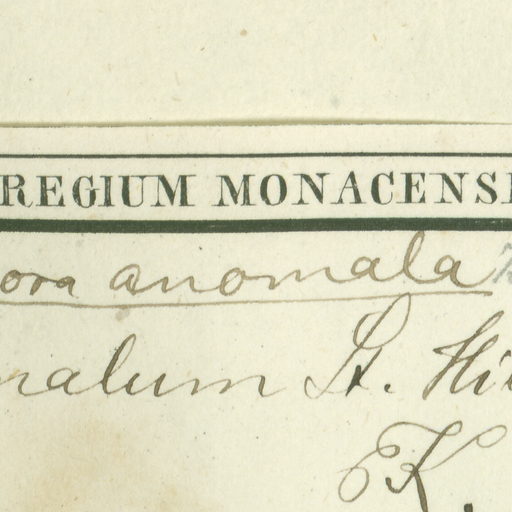 REGIUM MONACENS
ora anomala
nalum St. Hi
EK.